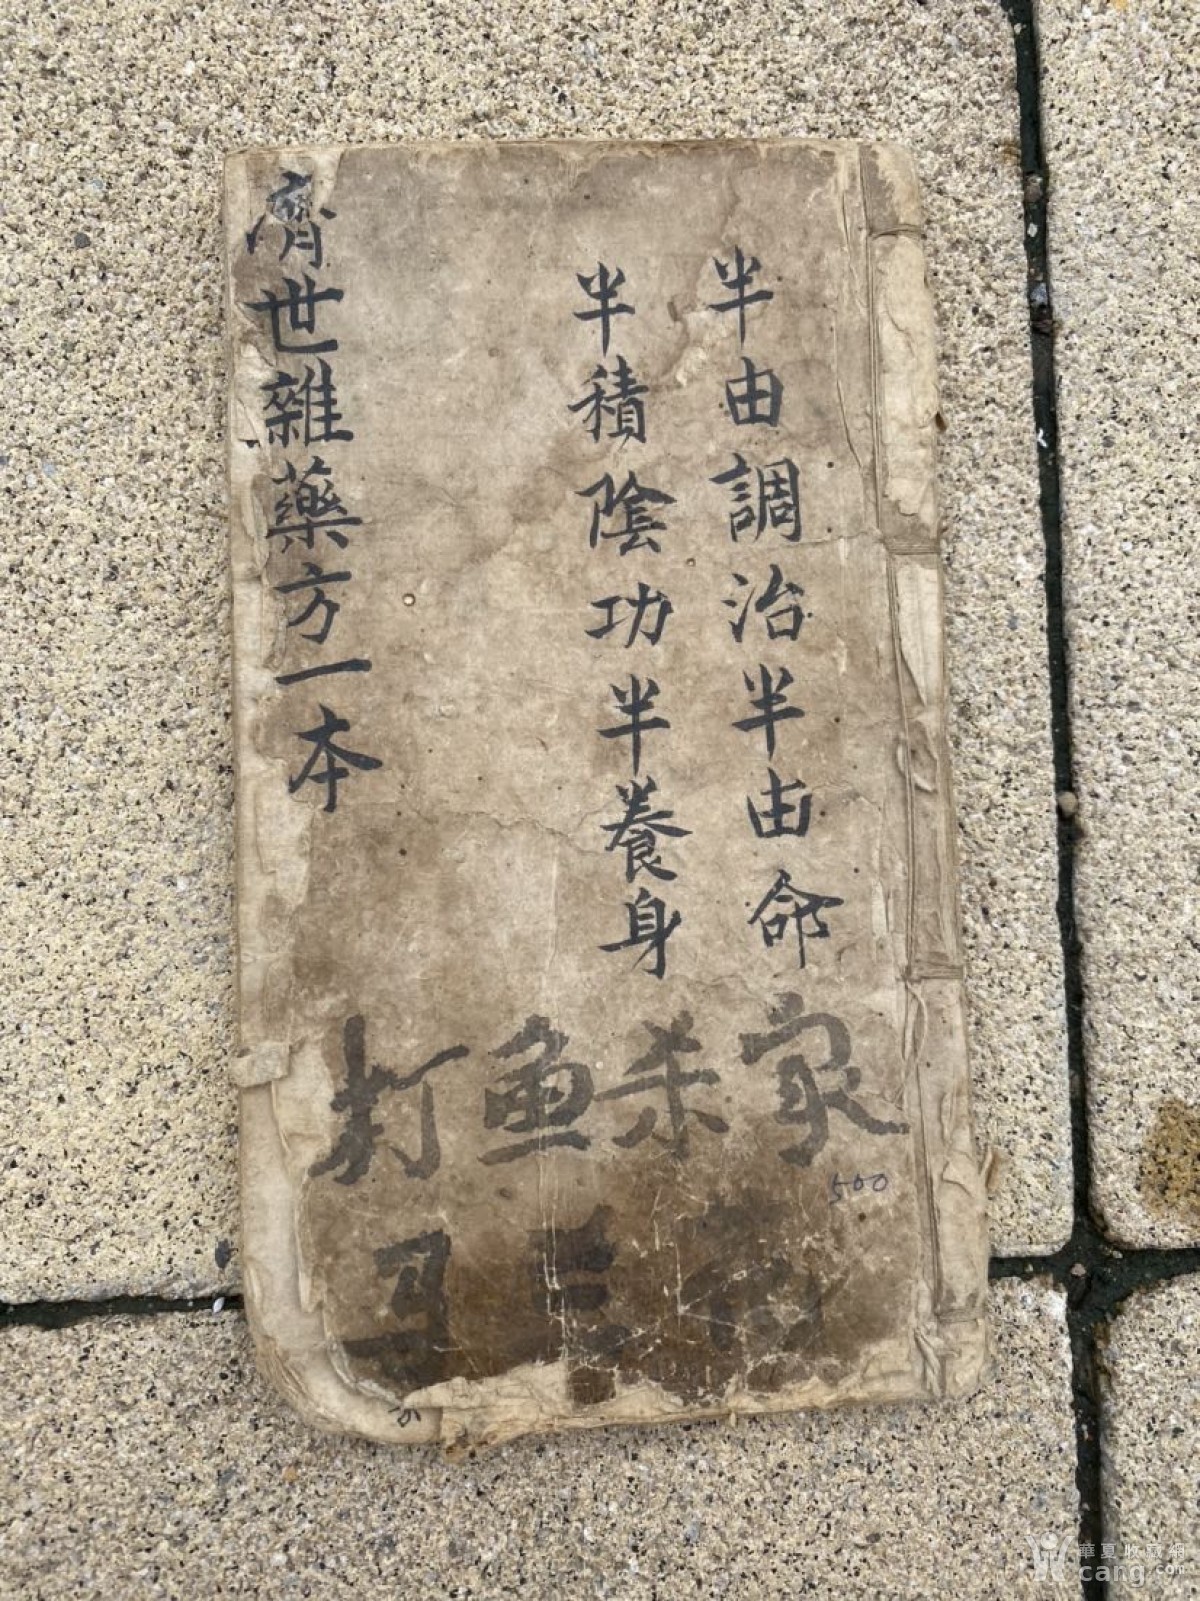 半由調治半由命
半積陰功半養身
齊世雜藥方一本
打鱼杀家
500
華夏收藏網
cang.com